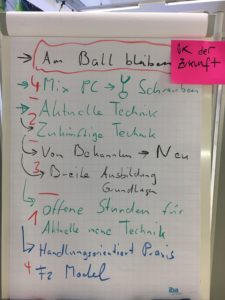 → Am Ball bleiben
ÜK der
Zukunft
4 Mix PC → Schrauben
→ Aktuelle Technik
2
Zukünftige Technik
→ Von Bekannten → Neu
3 → Breite Ausbildung
Grundlagen
→ Offene Stunden für
1
Aktuelle neue Technik
→ Handlungsorientiert Praxis
4 F2 Model
iba